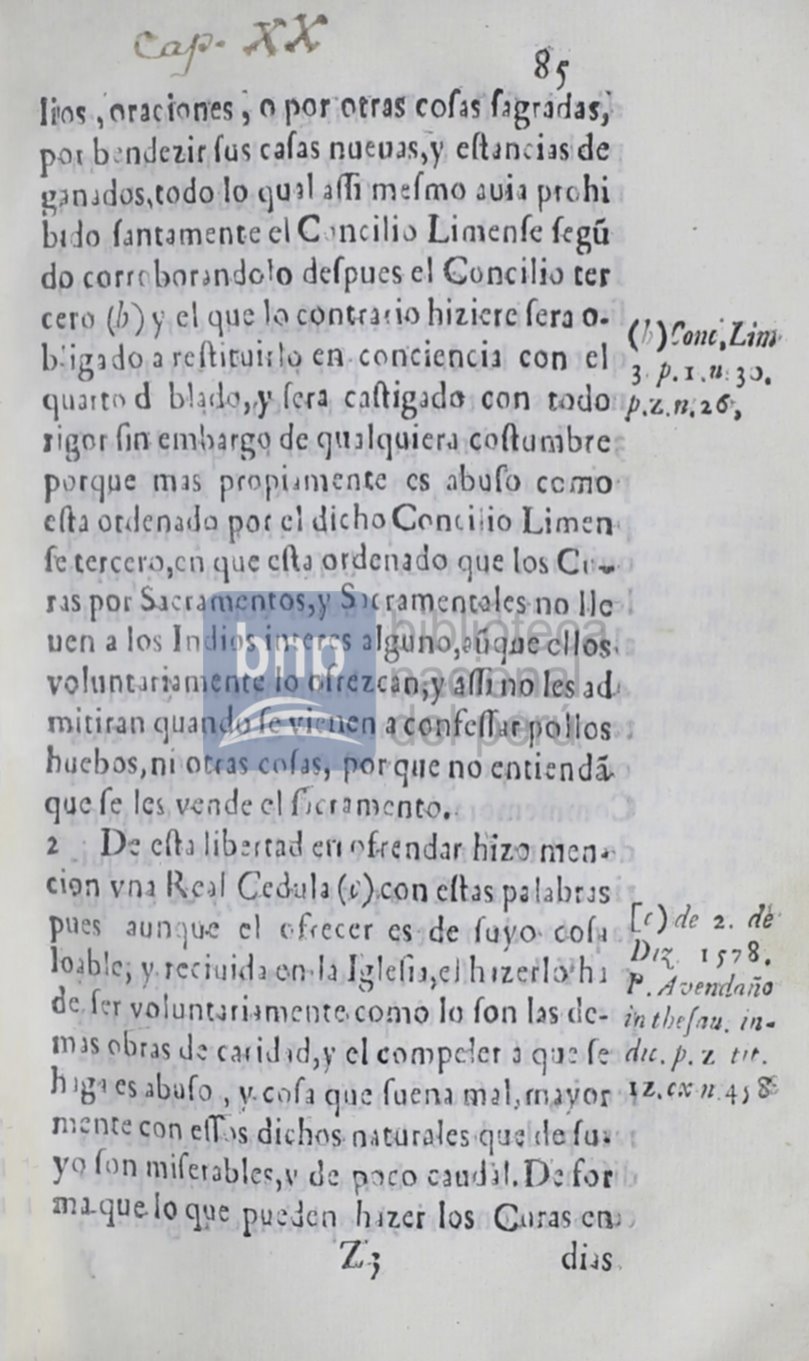 Cap. XX
85
lios, oraciones, o por otras coſas ſagradas,
por bendezir ſus caſas nueuas, y eſtancias de
ganados, todo lo qual aſſi meſmo auia prohi
bido ſantamente el Concilio Limenſe ſegũ
do corroborandolo deſpues el Concilio ter
cero (b) y el que lo contrario hiziere ſera o-
bligado a reſtituirlo en conciencia con el
quarto d blado, y ſera caſtigado con todo
rigor ſin embargo de qualquiera coſtumbre
porque mas propiamente es abuſo como
eſta ordenado por el dicho Concilio Limen
ſe tercero, en que eſta ordenado que los Cu-
ras por Sacramentos, y Sacramentales no lle
uen a los Indios interes alguno, aũque ellos
voluntariamente lo ofrezcan, y aſſi no les ad
mitiran quando ſe vienen a confeſſar pollos
huebos, ni otras coſas, porque no entiendã
que ſe les vende el ſacramento.
2 De eſta libertad en ofrendar hizo men-
cion vna Real Cedula (c) con eſtas palabras
pues aunque el ofrecer es de ſuyo coſa
loable, y reciuida en la Igleſia, el hazerlo ha
de ſer voluntariamente como lo ſon las de-
mas obras de caridad, y el compeler a que ſe
haga es abuſo, y coſa que ſuena mal, mayor
mente con eſſos dichos naturales que de ſu-
yo ſon miſerables, y de poco caudal. De for
ma que lo que pueden hazer los Curas en
Z3 dias
(b) Conc, Lim
3 p. 1. n. 30.
p. 2. n. 26,
[c) de 2. de
Diz. 1578.
P. Avendaño
in theſau. in-
dic. p. 2 tit.
12. ex n. 458
bnp biblioteca
nacional
del perú